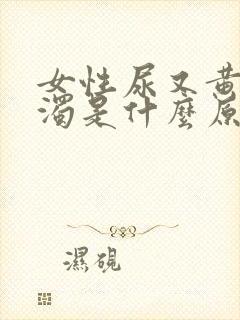 女性尿又黄
濁是什麼原
濕硯